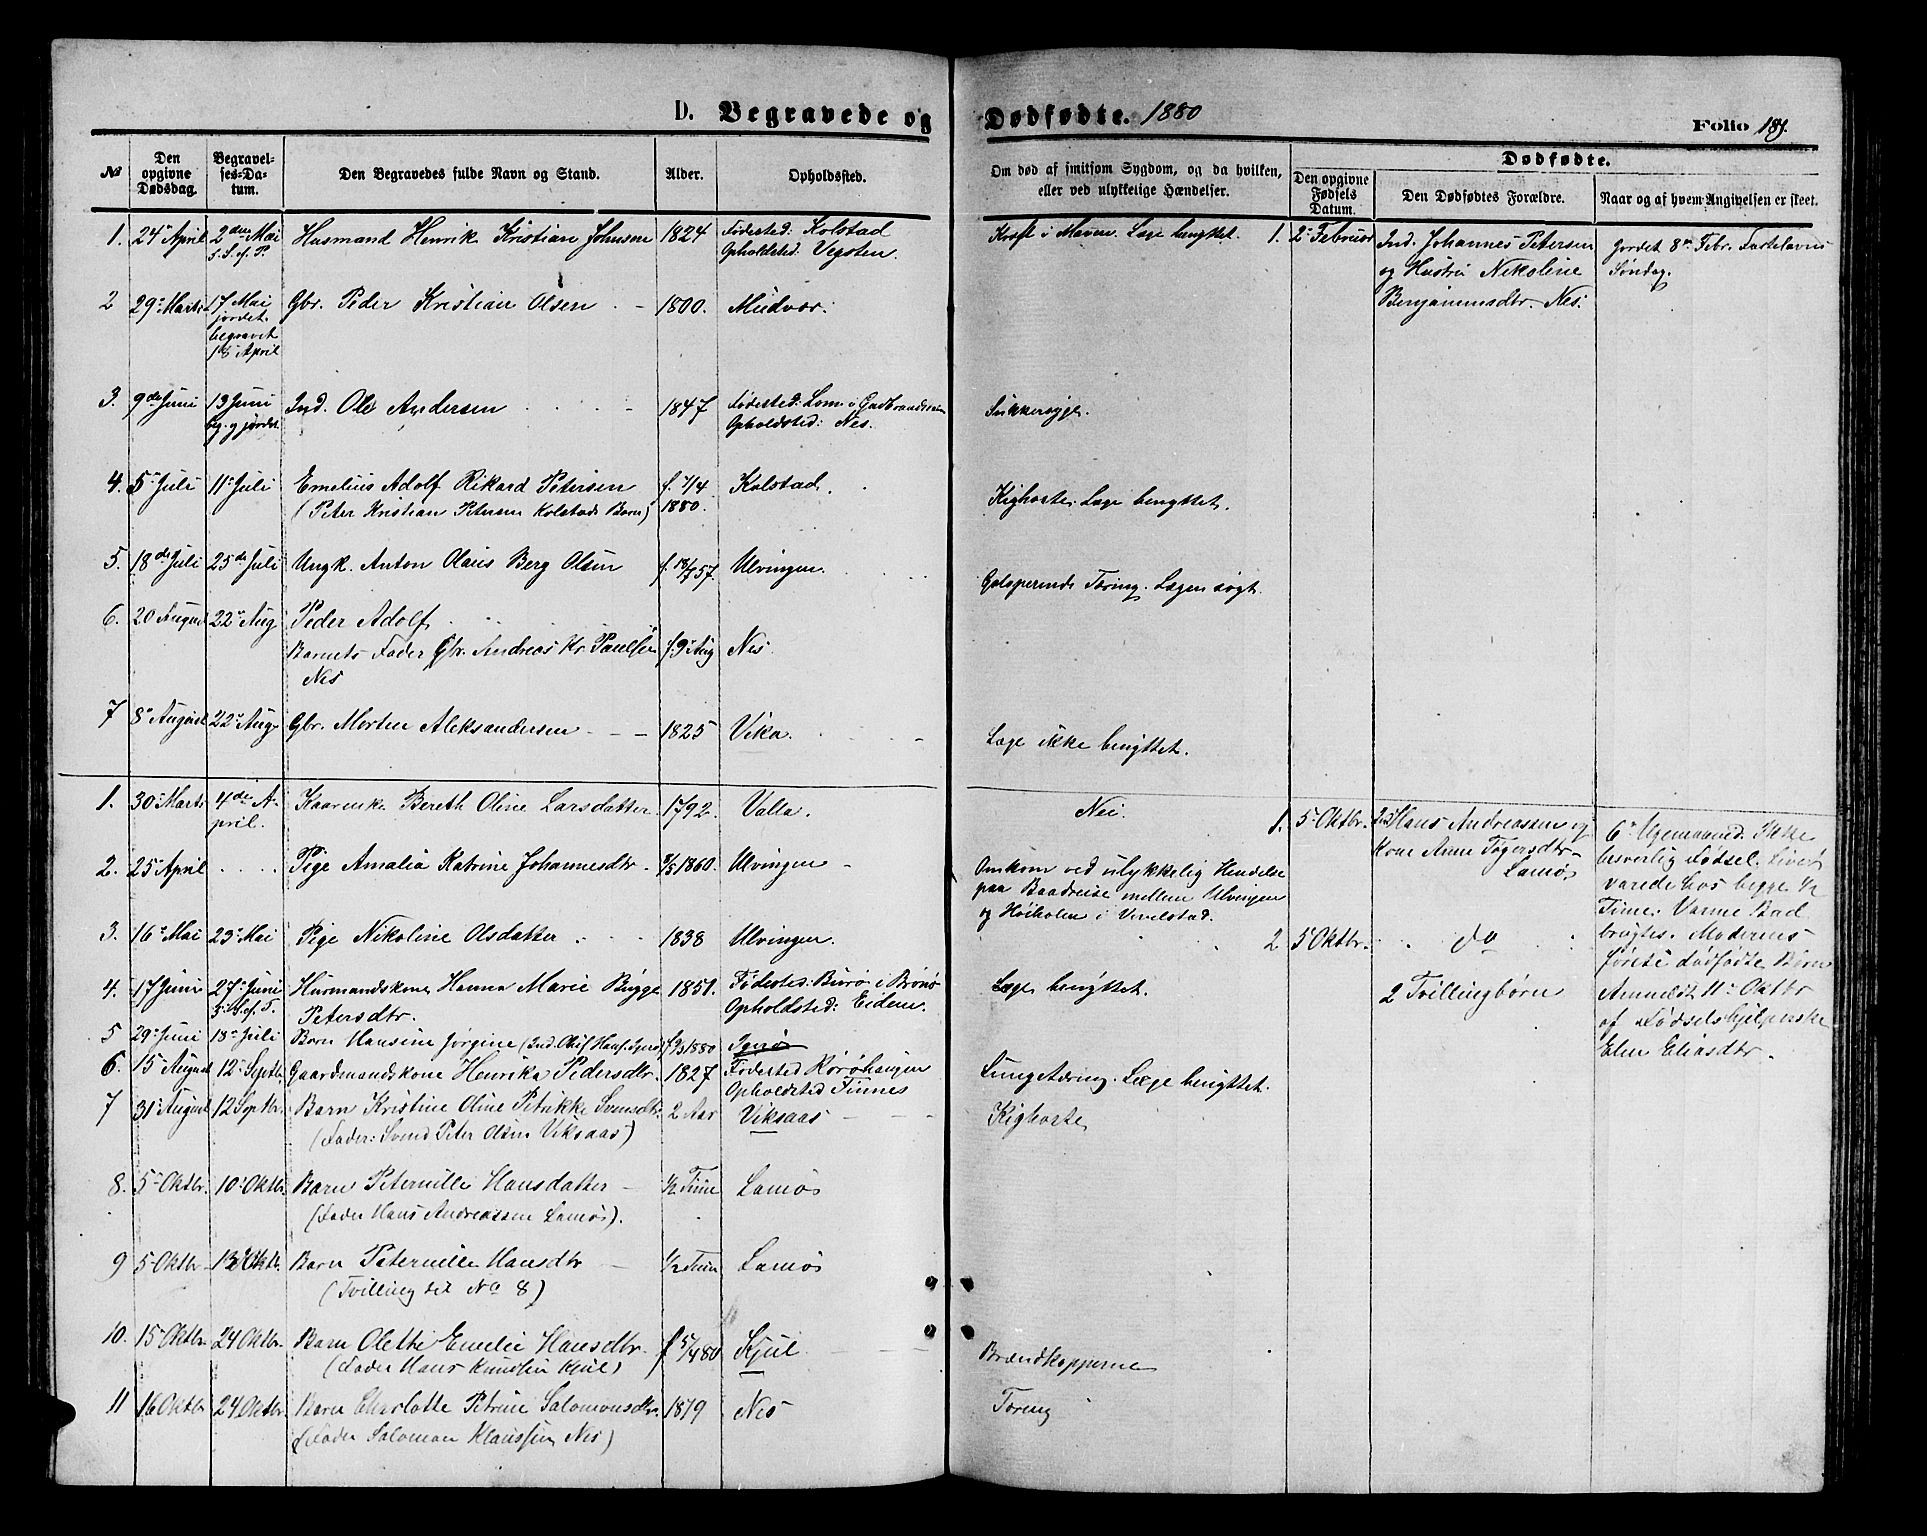 D. Begravede og Dødfødte. 1880
Folio 189.
№
Den opgivne Dødsdag.
Begravelses-Datum.
Den Begravedes fulde Navn og Stand.
Alder.
Opholdssted.
Om død af smitsom Sygdom, og da hvilken, eller ved ulykkelige Hændelser.
Dødfødte.
Den opgivne Fødsels Datum.
Den Dødfødtes Forældre.
Naar og af hvem Angivelsen er skeet.
1. 24 April 2den Mai Husmand Henrik Kristian Johnsen 1824 Fødested: Kolstad Kræft i Maven. Læge benyttet. 1. 2 Februar Ind. Johannes Petersen Jordet 8 Febr. Fastelavns
5. S. ef. P. Opholdsted: Vegsten. og Hustru Nikoline Søndag.
Benjaminsdtr. Nes.
2 29 Marts 17 Mai Gbr. Peder Kristian Olsen 1800. Mudvær.
jordet.
begravet
18 April
3. 9de Juni 13 Juni Ind. Ole Andersen 1847 Fødested: Lom i Gudbrandsdalen Sukkersyge.
beg. og jordet. Opholdsted: Nes.
4. 5 Juli 11 Juli Emelius Adolf Rikard Petersen f. 7/4 Kolstad. Kighoste. Læge benyttet.
(Peter Kristian Petersen Kolstads Barn) 1880.
5. 18de Juli 25de Juli Ungk. Anton Olaus Berg Olsen Ulvingen. Galoperende Tæring. Lægen søgt.
6. 20 August 22 Aug Peder Adolf
Barnets Fader Gbr. Andreas Kr. Paulsen f. 9 Aug Nes.
Nes
7 8 August 22 Aug Gbr. Morten Aleksandersen 1825 Vika. Læge ikke benyttet.
1. 30 Marts 4de A- Bereth Oline Larsdatter 1792. Valla. Nei. 1. 5 Oktbr. Hans Andreassen og 6 Ugemaaned. Ikke
pril. Kone Anne besverlig Fødsel. Livet
2. 25 April Pige Amalia Katrine Johannesdtr 1860. Ulvingen Omkom ved ulykkelig Hendelse Lamøs varede hos begge ½
paa Baadreise mellem Ulvingen Time. Varme Bad
og Høiholm i Vevelstad. brugtes. Moderens
3. 16 Mai 23 Mai Pige Nikoline Olsdatter 1838 Ulvingen. 2 5 Oktbr. do første dødfødte Børn
4. 17 Juni 27 Juni Husmandskone Hanna Marie Bugge 1851. Fødested: Burø i Brønø Læge benyttet. 2 Tvillingbørn Anmeldt 11 Oktbr
5. S. ef. T. Petersdtr. Opholdsted: Eidem. af Fødselshjelperske
5 29 Juni 18 Juli Barn Hansine Jørgine 1880 Elen Eliasdtr.
6. 15 August 12 Septbr Gaardmandskone Henrika Pedersdtr. 1827 Fødested Rørøhaugen Lungetæring. Læge benyttet.
Opholdsted Finnes
7 31 August 12 Septbr. Barn Kristine Oline Petrikke Svensdtr 2 Aar Viksaas Kighoste
(Fader: Svend Peter Olsen Viksaas)
8. 5 Oktbr. 10 Oktbr. Barn Peternille Hansdatter ½ Time Lamøs
(Fader Hans Andreassen Lamøs).
9 5 Oktbr Oktbr. Barn Peternille Hansdtr ½ Time Lamøs
(Tvilling til No 8)
10. 15 Oktbr. 24 Oktbr. Barn Olette Emelie Hansdtr. f 5/4 80 Kjul Brændkopperne
(Fader Hans Knudsen Kjul)
11 16 Oktbr 24 Oktbr. Barn Charlotte Petrine Salomonsdtr. 1879 Nes Tæring
(Fader Salomon Klaussen Nes)